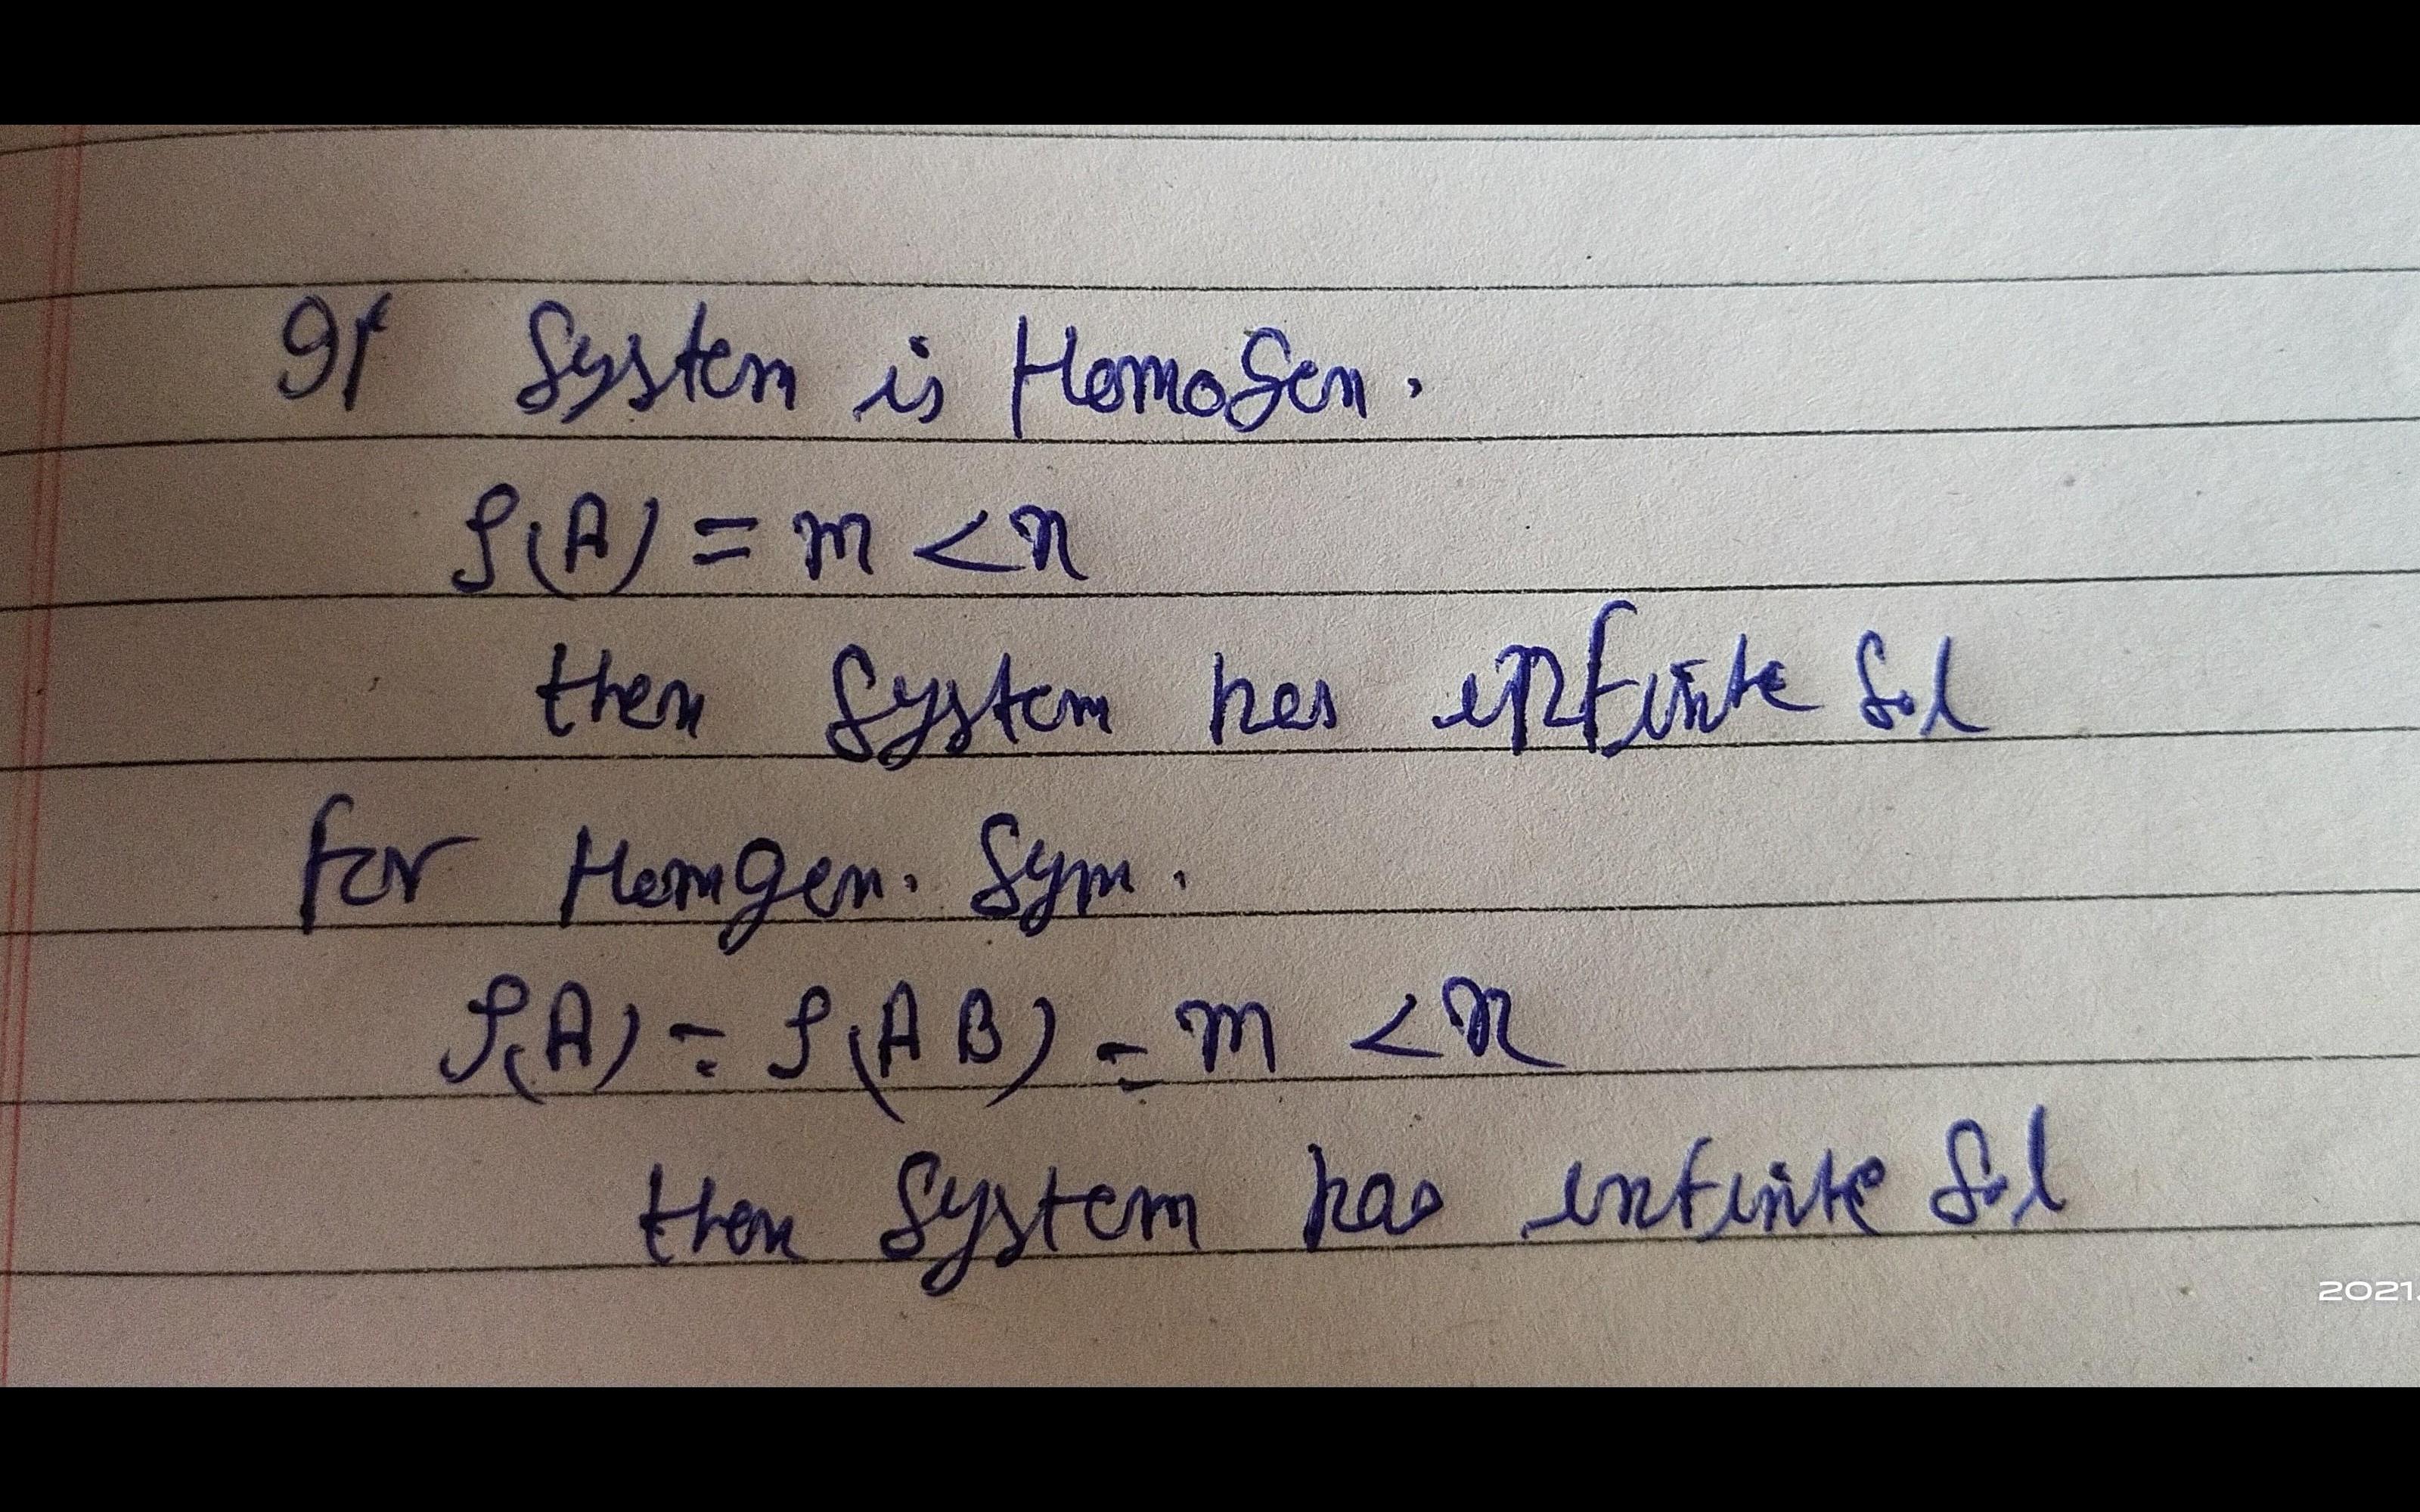 If System is Homogen.
ρ(A) = m < n
then System has infinite Sol
for Homgen. Sym.
ρ(A) = ρ(A B) = m < n
then System has infinite Sol
2021.